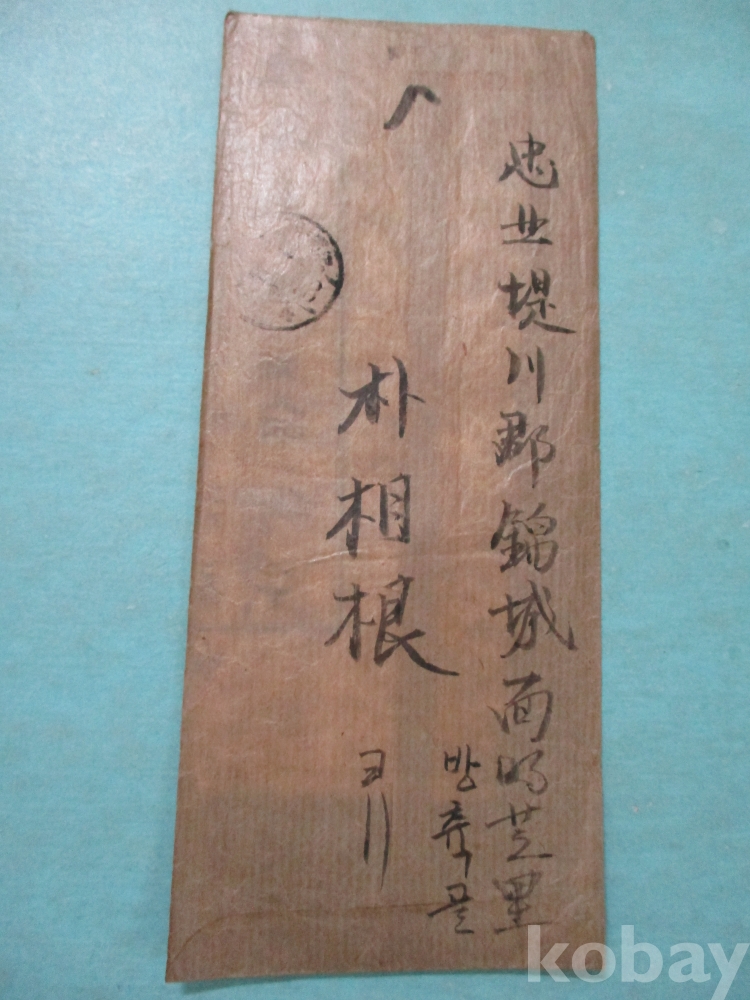 忠北堤川郡錦城面明芝里
방축골
朴相根
kobay